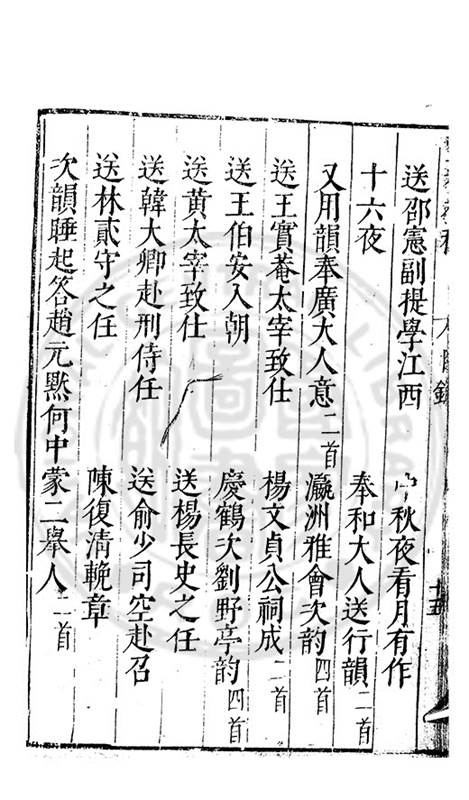 送邵憲副提學江西　中秋夜看月有作
十六夜　奉和大人送行韻二首
又用韻奉廣大人意二首　瀛洲雅會次韵四首
送王實菴太宰致仕　楊文貞公祠成二首
送王伯安入朝　慶鶴次劉野亭韵四首
送黄太宰致仕　送楊長史之任
送韓大卿赴刑侍任　送俞少司空赴召
送林貳守之任　陳復清輓章
次韻睡起答趙元默何中蒙二舉人二首